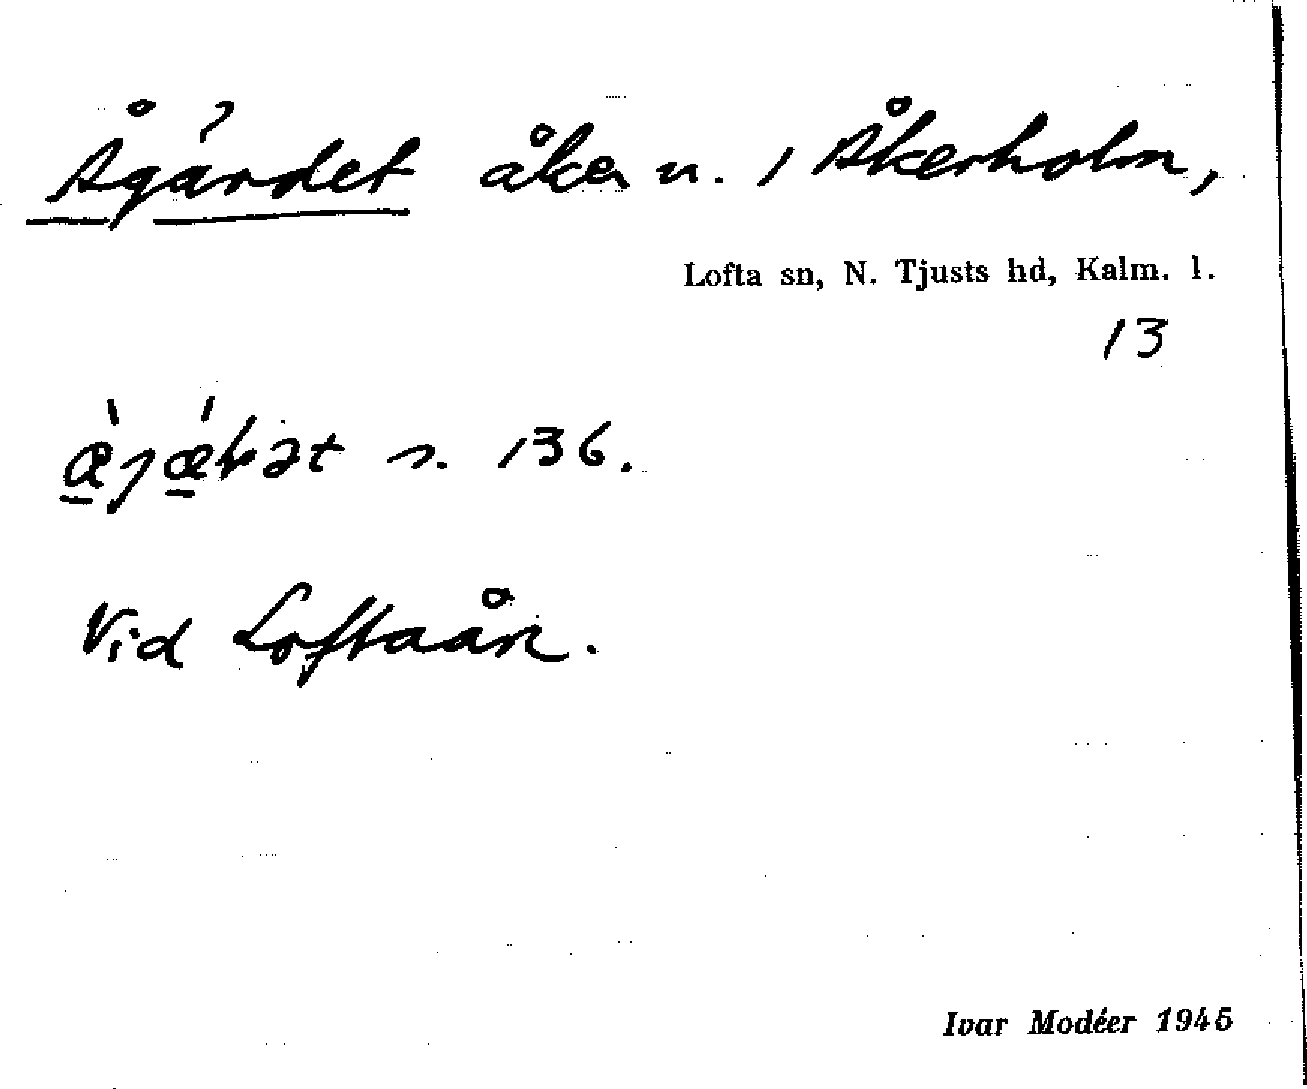 Ågärdet åker n. / Åkerholm,
Lofta sn, N. Tjusts hd, Kalm. l.
13
s. 136.
Vid Loftaån.
Ivar Modéer 1945